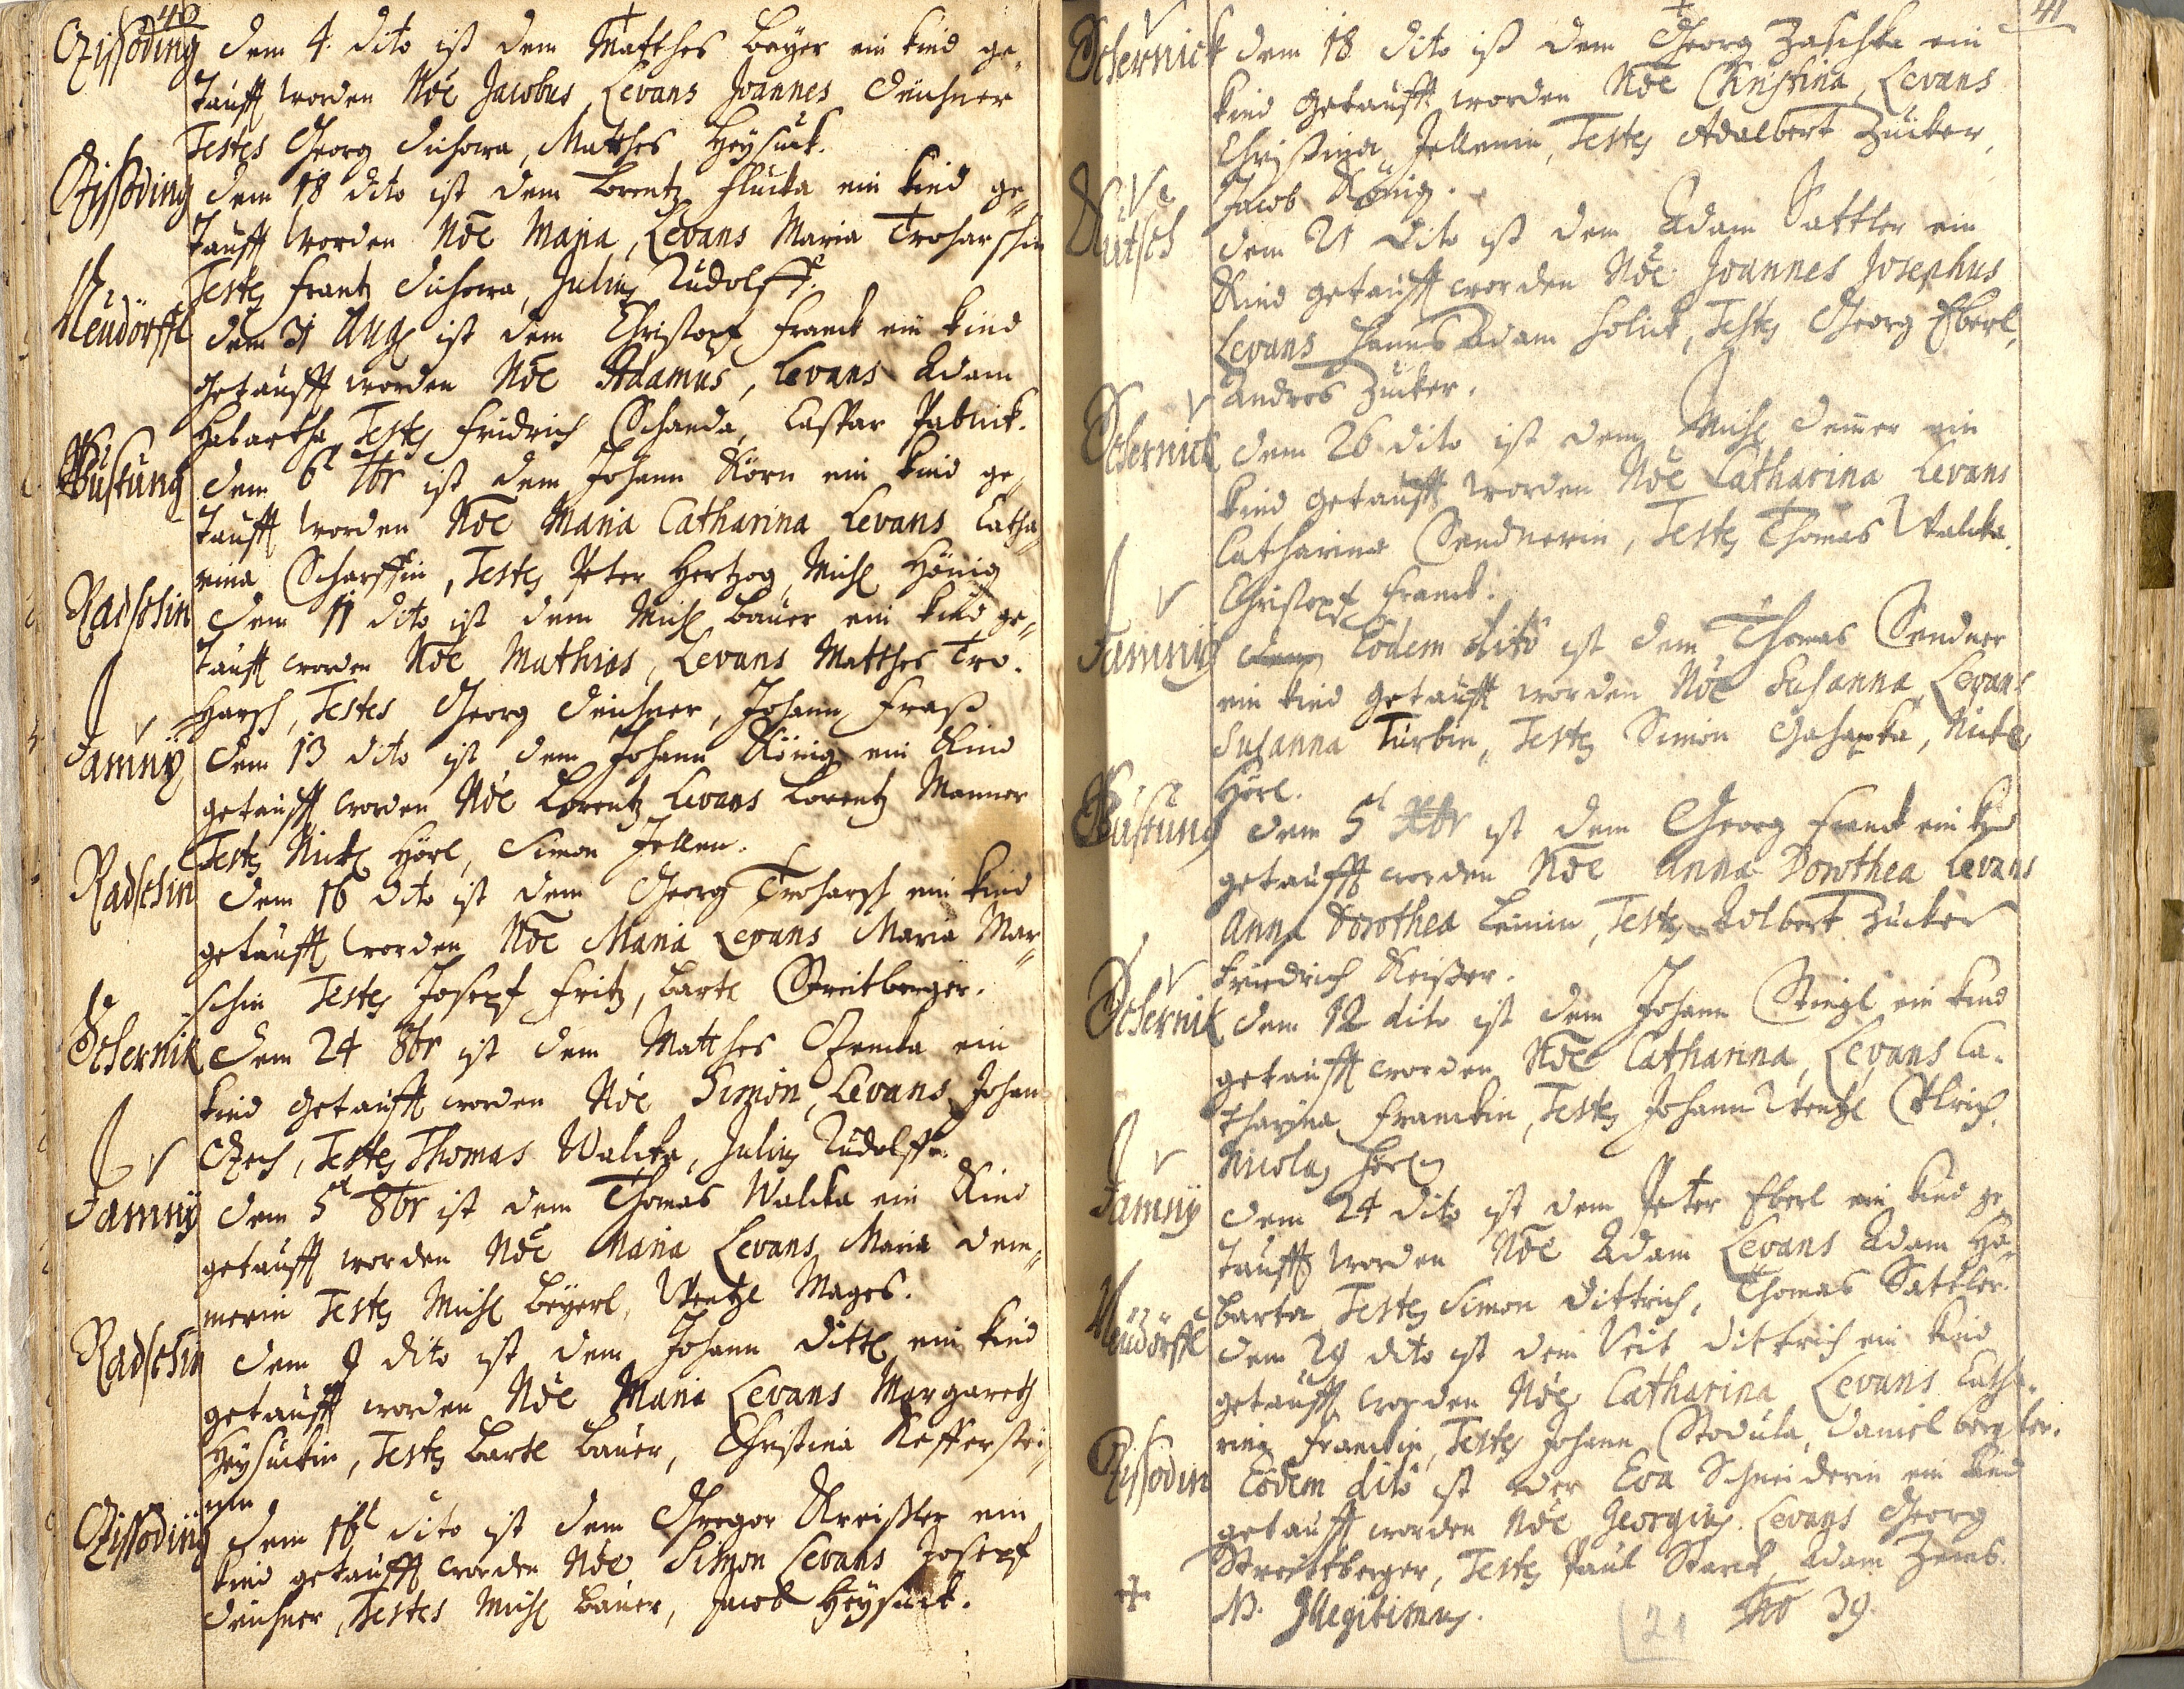 40
Czissoding dem 4. dito ist dem Matthes Beÿer ein kind ge-
taufft worden Nõe Jacobus, Levans Joannes Deichner
Testes Georg Sichowa, Matthes Heÿsück.
Czissoding dem 18 dito ist dem Lorentz Flucka ein kind ge-
taufft worden Nõe Maria, Levans Maria Troharschin
Testes Frantz Sichowa, Julius Rudolff.
Neudörffl dem 31 Aug ist dem Christoph Franck ein kind
getaufft worden Nõe Adamus, Levans Adam
Habartha, Testes Fridrich Schanda, Caspar Pabnick.
Wustung dem 6t 7br ist dem Johann Korn ein kind ge-
taufft worden Nõe Maria Catharina Levans Catha-
rina Scharffin, Testes Peter Hertzog, Michl Hönig
Radschin dem 11 dito ist dem Michl Bauer ein kind ge-
taufft worden Nõe Mathias, Levans Matthes Tro-
harsch, Testes Georg Deichner, Johann Fraß
Jamnÿ dem 13 dito ist dem Johann König ein Kind
getaufft worden Nõe Lorentz Levans Lorentz Manner
Testes Nickl Hörl, Simon Jellen.
Radschin dem 16 dito ist dem Georg Troharsch ein kind
getaufft worden Nõe Maria Levans Maria Mar-
schin Testes Joseph Fritz, Bartl Streitberger.
Tschernik dem 24 8br ist dem Matthes ein
kind getaufft worden Nõe Simon, Levans Johan
Czech, Testes Thomas Walcka, Julius Rudolff.
Jamnÿ dem 5t 8br ist dem Thomas Walcka ein Kind
getaufft worden Nõe Maria Levans Maria Dem-
merin Testes Michl Beÿerl, Wentzl Mages.
Radschin dem 9 dito ist dem Johann Dittl ein kind
getaufft worden Nõe Maria Levans Margareth
Heÿsückin, Testes Bartl Bauer, Christina
Czissoding dem 16t dito ist dem Gregor Kreißler ein
kind getaufft worden Nõe Simon Levans Joseph
Deichner, Testes Michl Bauer, Jacob Heÿsück.
41
Tschernick dem 18 dito ist dem Georg Zaschka ein
kind getaufft worden Nõe Christina, Levans
Christina Jellenin, Testes Adalbert Zucker,
Jacob König.
Kutsch dem 21 dito ist dem Adam Sattler ein
Kind getaufft worden Nõe Joannes Josephus
Levans Hanns Adam Holick, Testes Georg Eberl,
Andres Zucker.
Tschernick dem 26 dito ist dem Michl Demmer ein
kind getaufft worden Nõe Catharina Levans
Catharina Sendnerin, Testes Thomas Walcka.
Christoph Franck.
Jamnÿ Eodem dito ist dem Thomas Sendner
ein kind getaufft worden Nõe Susanna Levans
Susanna Turbin, Testes Simon, Nickl
Hörl.
Wustung dem 5t ist dem Georg Franck ein kind
getaufft worden Nõe Anna Dorothea Levans
Anna Dorothea Leinin, Testes Adlbert Zucker
Friedrich Keißer.
Tschernik dem 12 dito ist dem Johann Stingl ein kind
getaufft worden Nõe Catharina, Levans Ca-
tharina Franckin, Testes Johann Wentzl Ulrich.
Nicolas Hörl
Jamnÿ dem 24 dito ist dem Peter Eberl ein kind ge-
taufft worden Nõe Adam Levans Adam Ha-
barta Testes Simon Dittrich, Thomas Sattler.
Neudörffl dem 29 dito ist dem Veit Dittrich ein kind
getaufft worden Nõe Catharina Levans Catha-
rina Franckin, Testes Johann Stodula, Daniel Bergler.
Czissodin Eodem dito ist der Eva Schneiderin ein kind
getaufft worden Nõe Georgius. Levans Georg
Streittberger, Testes Paul Starck, Adam
NB. Illegitimus.
21
39